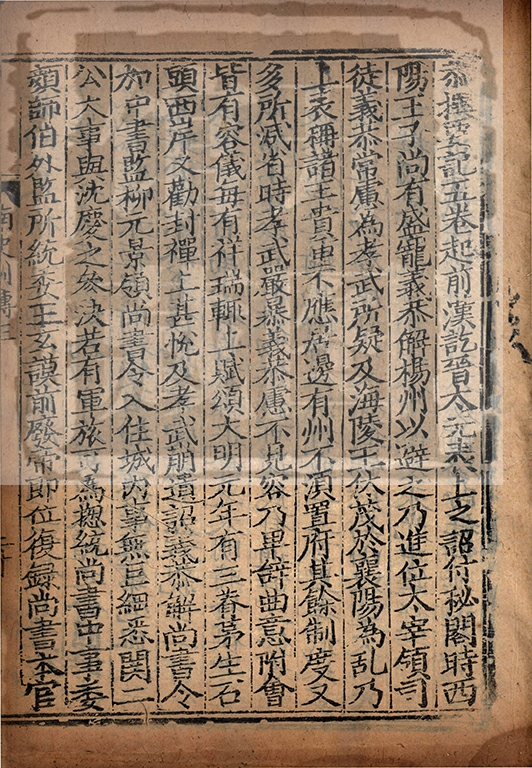 撰要記五卷起前漢訖晉太元表上之詔付秘閣時西
陽王子尚有盛寵義恭解楊州以避之乃進位太宰領司
徒義恭常慮為孝武所疑及海陵王休茂於襄陽為乱乃
上表稱諸王貴重不應居邊有州不湏置府其餘制度又
多所减省時孝武嚴暴義恭慮不見容乃卑辞曲意附會
皆有容儀每有祥瑞輒上賦頌大明元年有三脊茅生石
頭西岸又勸封禪上甚恱及孝武崩遺詔義恭解尚書令
加中書監柳元景領尚書令入住城内事無巨細悉関二
公大事與沈慶之叅決若有軍旅可為揔統尚書中事委
顔師伯外監所統委王玄謨前廢帝即位復録尚書本官
南史列傳三